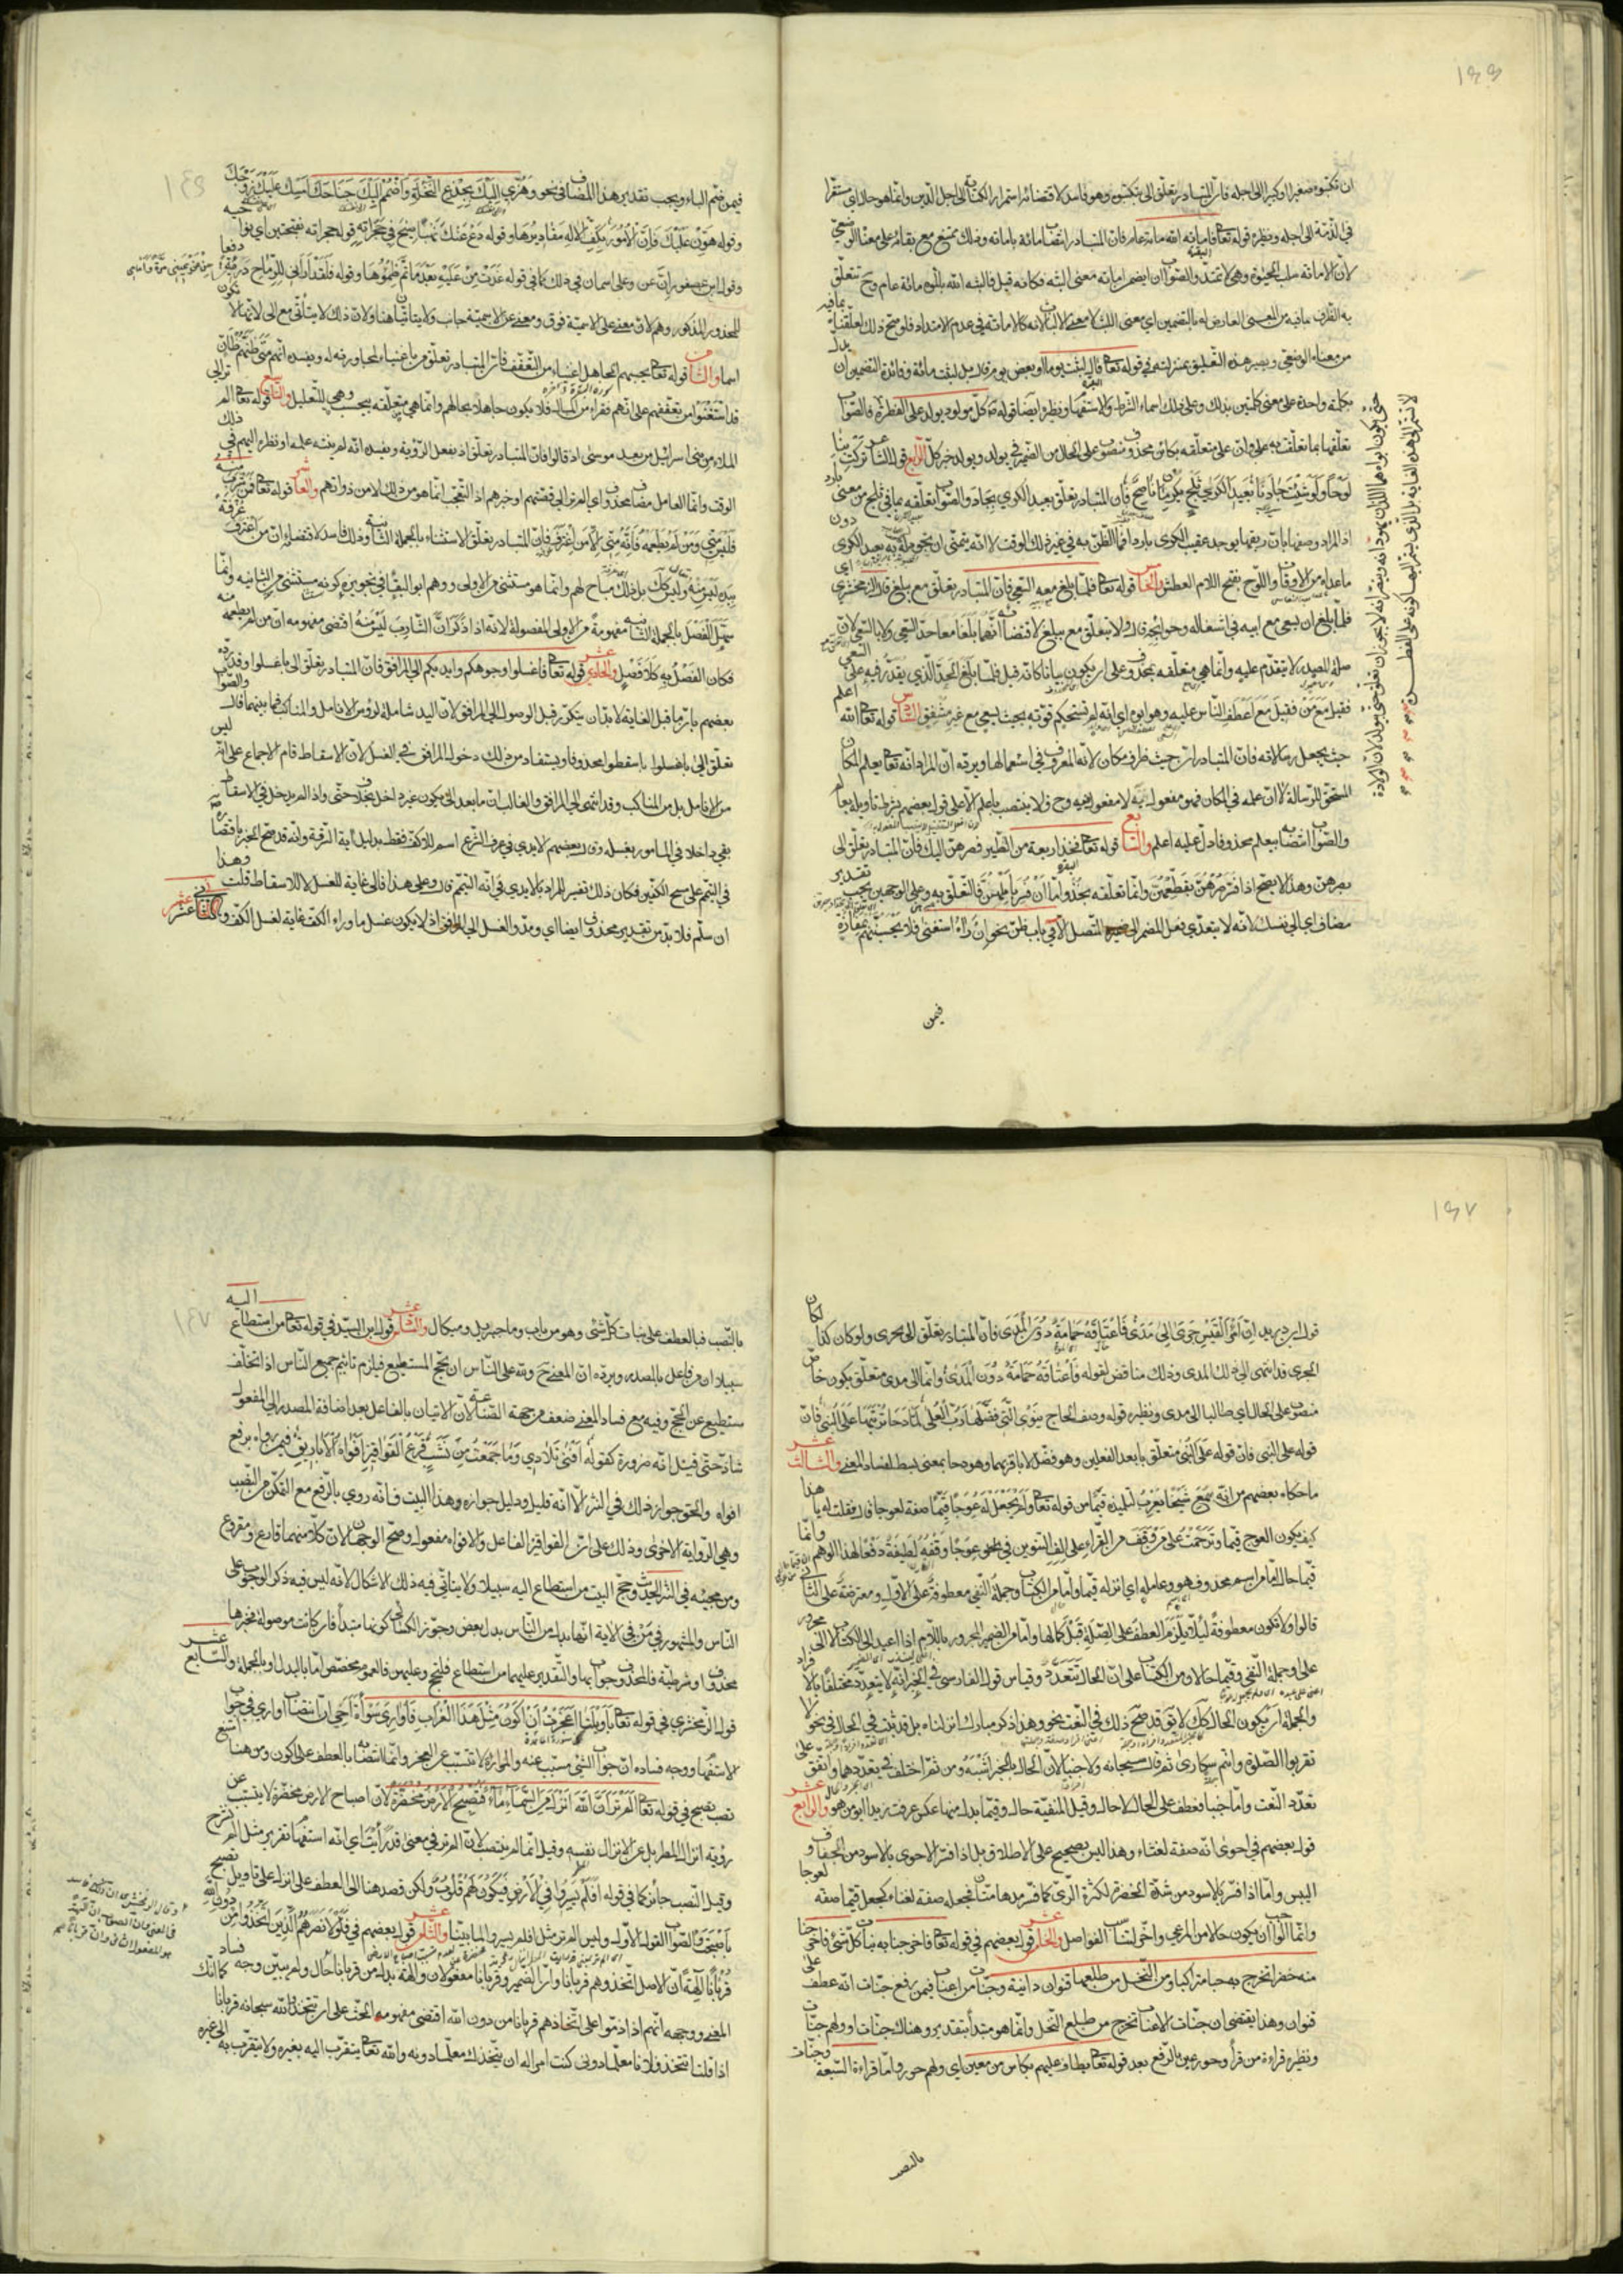 ١٤٦
ان تكتبوه صغيرا او كبيرا الى اجله فان المتبادر تعلق الى بتكتبوه وهو فاسد لاقتضائه استمرار الكتابة الى اجل الدين وانما هو حال اي مستقرا
في الذمة الى اجله ونظيره قوله تعالى فاماته الله مائة عام فان المتبادر انتصاب مائة باماته وذلك ممتنع مع بقائه على معناه الوضعي
لان الاماتة سلب الحيوة وهي لا تمتد والصواب ان يضمن اماته معنى البثه فكانه قيل فالبثه الله بالموت مائة عام وح تتعلق
به الظرف بما فيه من المعنى العارض له بالتضمين اي معنى اللبث لا معنى الالباث لانه كالاماتة في عدم الامتداد فلو صح ذلك لعلقناه بما فيه
من معناه الوضعي ويصير هذه التعليق بمنزلته في قوله تعالى قال لبثت يوما او بعض يوم قال بل لبثت مائة عام وفائدة التضمين ان يدل
بكلمة واحدة على معنى كلمتين يدلك وعلى ذلك اسماء الشرط والاستفهام ونظيره ايضا قوله ص كل مولود يولد على الفطرة فالصواب
تعلقها بما تعلقت به على وان على متعلقه بكائن محذوف منصوب على الحال من الضمير في يولد ويولد خبر كل الرابع قول الشاعر تركت بنا
لوحا ولو شئت جادنا بعيد الكرى ثلج بكرمان ناصح فان المتبادر تعلق بعيد الكرى بجاد والصواب تعلقه بما في ثلج من معنى بارد
اذ المراد وصفها بان ريقها يوجد عقيب الكرى باردا فما الظن به في غير ذلك الوقت لا انه يتمنى ان تجود له به بعيد الكرى دون
ما عداه من الاوقات واللوح بفتح اللام العطش الخامس قوله تعالى فلما بلغ معه السعي فان المتبادر تعلق مع ببلغ قال الزمخشري اي
فلما بلغ ان يسعى مع ابيه في اشغاله وحوائجه قال ولا تتعلق مع ببلغ لاقتضائه انهما بلغا معا حد السعي ولا بالسعي لان
صلة المصدر لا يتقدم عليه وانما هي متعلقه بمحذوف على ان يكون بيانا كانه قيل فلما بلغ الحد الذي يقدر فيه على السعي
فقيل مع من فقيل مع اعطف الناس عليه وهو ابوه اي انه لم تستحكم قوته بحيث يسعى مع غير مشفق السادس قوله تعالى الله اعلم
حيث يجعل رسالاته فان المتبادر ان حيث ظرف مكان لانه المعروف في استعمالها ويرده ان المراد انه تعالى يعلم المكان
المستحق للرسالة لا ان علمه في المكان فهو مفعول به لا مفعول فيه وح فلا ينتصب باعلم الا على قول بعضهم بشرط تاويله بعالم
والصواب انتصابه بيعلم محذوفا دل عليه اعلم والسابع قوله تعالى فخذ اربعة من الطير فصرهن اليك فان المتبادر تعلق الى
بصرهن وهذا لا يصح اذا فسر صرهن بقطعهن وانما تعلقه بخذ واما ان فسر باملهن فالتعلق به وعلى الوجهين يجب تقدير
مضاف اي الى نفسك لانه لا يتعدى فعل المضمر المتصل الا في باب ظن نحو ان راه استغنى فلا يحسبنهم بمفازة
فيمن
١٤٦
فيمن ضم الباء ويجب تقدير هذا المضاف في نحو وهزي اليك بجذع النخلة واضمم اليك جناحك امسك عليك زوجك
وقوله هون عليك فان الامور بكف الاله مقاديرها وقوله دع عنك نهبا صيح في حجراته قوله حجراته بفتحتين اي نواحيه
وقول ابن عصفور ان عن وعلى اسمان في ذلك كما في قوله غدت من عليه بعد ما تم ظمؤها وقوله فلقد اراني للرماح دريئة من عن يميني مرة وامامي دفعا
للمحذور المذكور وهم لان معنى على الاسمية فوق ومعنى عن الاسمية جانب ولا يتأتيان هنا ولان ذلك لا يتأتى مع الى لانها لا تكون
اسما والثامن قوله تعالى يحسبهم الجاهل اغنياء من التعفف فان المتبادر تعلق من باغنياء لمجاورته له ويفسده انهم متى ظنهم ظان
قد استغنوا من تعففهم علم انهم فقراء من المال فلا يكون جاهلا بحالهم وانما هي متعلقه بيحسب وهي للتعليل والتاسع قوله تعالى الم تر الى
الملاء من بني اسرائيل من بعد موسى اذ قالوا فان المتبادر تعلق اذ بفعل الروية ويفسده انه لم ينته علمه او نظره اليهم في ذلك
الوقت وانما العامل مضاف محذوف اي الم تر الى قصتهم او خبرهم اذ التعجب انما هو من ذلك لا من ذواتهم والعاشر قوله تعالى فمن شرب منه
فليس مني ومن لم يطعمه فانه مني الا من اغترف غرفة فان المتبادر تعلق الاستثناء بالجملة الثانية وذلك فاسد لاقتضائه ان من اغترف
بيده ليس منه وليس كذلك بل ذلك مباح لهم وانما هو مستثنى من الاولى ووهم ابو البقاء في تجويزه كونه مستثنى من الثانيه وانما
سهل الفصل بالجملة الثانية مفهومة من الاولى المفصولة لانه اذا ذكر ان الشارب ليس منه اقتضى مفهومه ان من لم يطعمه منه
فكان الفصل به كلا فصل والحادي عشر قوله تعالى فاغسلوا وجوهكم وايديكم الى المرافق فان المتبادر تعلق الى باغسلوا وقد رده
بعضهم بان ما قبل الغاية لا بد ان يتكرر قبل الوصول الى المرافق لان اليد شاملة لرؤس الانامل والمناكب فما بينهما قال والصواب
تعلق الى باغسلوا باسقطوا محذوفا ويستفاد من ذلك دخول المرافق في الغسل لان الاسقاط قام الاجماع على انه ليس
من الانامل بل من المناكب وقد انتهى الى المرافق والغالب ان ما بعد الى يكون غير داخل بخلاف حتى واذا لم يدخل في الاسقاط
بقي داخلا في المامور بغسله وقال بعضهم الايدي في عرف الشرع اسم للاكف فقط بدليل آية السرقة وانه قد صح الخبر باقتصاره
في التيمم على مسح الكفين فكان ذلك تفسير للمراد بالايدي في انه التيمم قال وعلى هذا فالى غاية للغسل لا للاسقاط قلت وهذا
ان سلم فلا بد من تقدير محذوف ايضا اي ومدوا الغسل الى المرافق اذ لا يكون غسل ما وراء الكف غاية لغسل الكف والثاني عشر
١٤٧
قول ابن دريد ان امرأ القيس جرى الى مدى فاعتاقه حمامه دون المدى فان المتبادر تعلق الى بجرى ولو كان كذا لكان
الجرى قد انتهى الى ذلك المدى وذلك مناقض لقوله فاعتاقه حمامه دون المدى وانما الى مدى متعلق بكون خاص
منصوب على الحال اي طالبا الى مدى ونظيره قوله وصف الحاج ينوي التي فضلها رب العلى لما دحا تربتها على البنى فان
قوله على البنى فان قوله على البنى متعلق بابعد الفعلين وهو فضل لا باقربهما وهو دحا بمعنى بسط لفساد المعنى والثالث عشر
ما حكاه بعضهم من انه سمع شيخا يعرب لتلميذه قيما من قوله تعالى ولم يجعل له عوجا قيما صفة لعوجا قال فقلت له يا هذا
كيف يكون العوج قيما وترحمت على من وقف من القراء على الف التنوين في نحو عوجا وقفه لطيفة دفعا لهذا الوهم وانما
قيما حال اما من اسم محذوف هو وعامله اي انزله قيما واما من الكتاب وجملة النفي معطوفة على الاول ومعترضة على الثاني
قالوا ولا تكون معطوفة لئلا يلزم العطف على الصلة قبل كمالها واما من الضمير المجرور باللام اذا اعيد الى الكتاب لا الى مجرور
على وجملة النفي وقيما حالان من الكتاب على ان الحال تتعدد وقياس قول الفارسي في الخبر انه لا يتعدد مختلفا بالافراد
والجملة ان يكون الحال كذلك لا يق قد صح ذلك في النعت نحو وهذا ذكر مبارك انزلناه بل قد ثبت في الحال في نحو لا
تقربوا الصلوة وانتم سكارى ثم قال سبحانه ولا جنبا لان الحال بالخبر اشبه ومن ثم اختلف في تعددهما واتفق على
تعدد النعت واما جنبا فعطف على الحال لا حال وقيل المنفية حال وقيما بدل منها عكس عرفت زيدا ابو من هو والرابع عشر
قول بعضهم في احوى انه صفة لغثاء وهذا ليس بصحيح على الاطلاق بل اذا فسر الاحوى بالاسود من الجفاف و
اليبس واما اذا فسر بالاسود من شدة الخضرة لكثرة الري كما فسر مدهامتان فجعله صفة لغثاء كجعل قيما صفه لعوجا
وانما الواجب ان يكون حالا من المرعى واخر لتناسب الفواصل والخامس عشر قول بعضهم في قوله تعالى فاخرجنا به نبات كل شئ فاخرجنا
منه خضرا نخرج به حبا متراكبا ومن النخل من طلعها قنوان دانية وجنات من اعناب فيمن رفع جنات انه عطف على
قنوان وهذا يقتضي ان جنات الاعناب تخرج من طلع النخل وانما هو مبتدأ بتقدير وهناك جنات او ولهم جنات
ونظيره قراءة من قرأ وحور عين بالرفع بعد قوله تعالى يطاف عليهم بكاس من معين اي ولهم حور واما قراءة السبعة وجنات
بالنصب
١٤٧
بالنصب فبالعطف على نبات كل شئ وهو من باب وما جبريل وميكال والسادس عشر قول ابن السيد في قوله تعالى من استطاع اليه
سبيلا ان من فاعل بالمصدر ويرده ان المعنى ح ولله على الناس ان يحج المستطيع فيلزم تاثيم جميع الناس اذا تخلف
مستطيع عن الحج وفيه مع فساد المعنى ضعف من جهة الصناعة لان الاتيان بالفاعل بعد اضافة المصدر الى المفعول
شاذ حتى قيل انه ضرورة كقوله افنى تلادي وما جمعت من نشب قرع القواقيز افواه الاباريق فيمن رواه برفع
افواه والحق جواز ذلك في النثر الا انه قليل ودليل جوازه وهذا البيت فانه روي بالرفع مع التمكن من النصب
وهي الرواية الاخرى وذلك على ان القواقيز الفاعل والافواه مفعول وصح الوجهان لان كلا منهما قارع ومقروع
ومن مجيئه في النثر الحديث وحج البيت من استطاع اليه سبيلا ولا يتاتى فيه ذلك الاشكال لانه ليس فيه ذكر الوجوب على
الناس والمشهور في من في الاية انها بدل من الناس بدل بعض وجوز الكسائي كونها مبتدأ فان كانت موصولة فخبرها
محذوف او شرطية فالمحذوف جوابها والتقدير عليهما من استطاع فليحج وعليهن فالعموم مخصص اما بالبدل او بالجملة والسابع عشر
قول الزمخشري في قوله تعالى يا ويلتا اعجزت ان اكون مثل هذا الغراب فاواري سوأة اخي ان انتصاب اواري في جواب
الاستفهام ووجه فساده ان جواب الشئ مسبب عنه والمواراة لا تتسبب عن العجز وانما انتصابه بالعطف على اكون ومن هنا امتنع
نصب تصبح في قوله تعالى الم تر ان الله انزل من السماء ماء فتصبح الارض مخضرة لان اصباح الارض مخضرة لا يتسبب عن
رؤية انزال المطر بل عن الانزال نفسه وقيل انما لم ينتصب لان الم تر في معنى قد رأيت اي انه استفهام تقرير مثل الم نشرح
وقيل النصب جائز كما في قوله افلم يسيروا في الارض فيكون لهم قلوب ولكن قصد هنا الى العطف على انزل على تاويل تصبح
باصبحت والصواب القول الاول وليس الم تر مثل افلم يسيروا لما بينا والثامن عشر قول بعضهم في فلولا نصرهم الذين اتخذوا من دون الله
قربانا آلهة ان الاصل اتخذوهم قربانا وان الضمير وقربانا مفعولان وآلهة بدل من قربانا حال ولم يبين وجه فساد
المعنى ووجهه انهم اذا ذموا على اتخاذهم قربانا من دون الله اقتضى مفهومه الحث على ان يتخذوا الله سبحانه قربانا كما انك
اذا قلت اتتخذ فلانا معلما دوني كنت امرا له ان يتخذك معلما دونه والله تعالى يتقرب اليه بغيره ولا يتقرب به الى غيره